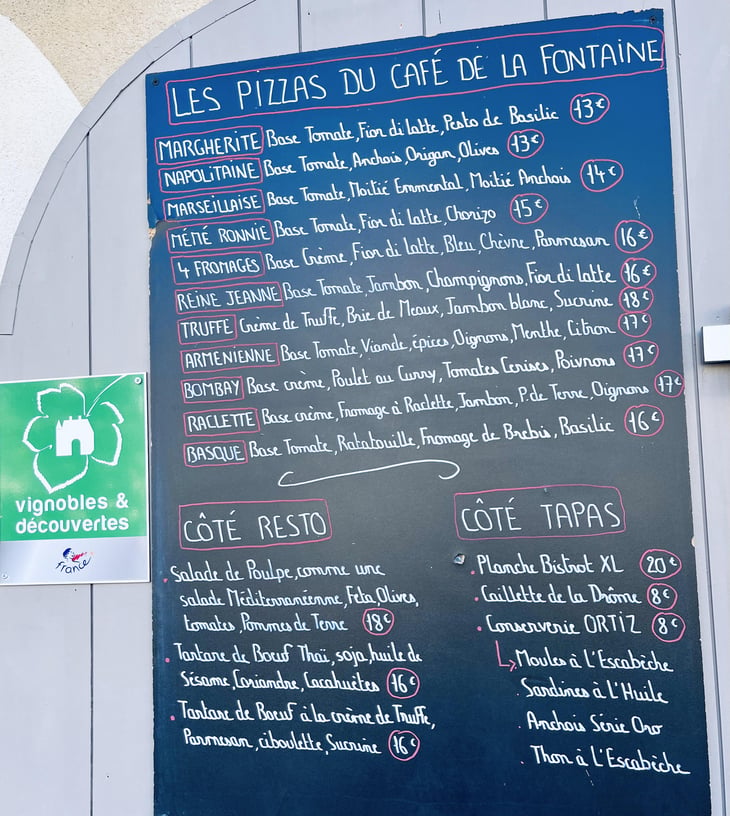 LES PIZZAS DU CAFÉ DE LA FONTAINE
MARGHERITE Base Tomate, Fior di latte, Pesto de Basilic 13€
NAPOLITAINE Base Tomate, Anchois, Origan, Olives 13€
MARSEILLAISE Base Tomate, Moitié Emmental, Moitié Anchois 14€
MÉMÉ RONNIE Base Tomate, Fior di Latte, Chorizo 15€
4 FROMAGES Base Crème, Fior di latte, Bleu, Chèvre, Parmesan 16€
REINE JEANNE Base Tomate, Jambon, Champignons, Fior di latte 16€
TRUFFE Crème de Truffe, Brie de Meaux, Jambon blanc, Sucrine 18€
ARMENIENNE Base Tomate, Viande, épices, Oignons, Menthe, Citron 17€
BOMBAY Base crème, Poulet au Curry, Tomates Cerises, Poivrons 17€
RACLETTE Base crème, Fromage à Raclette, Jambon, P. de Terre, Oignons 17€
BASQUE Base Tomate, Ratatouille, Fromage de Brebis, Basilic 16€
CÔTÉ RESTO
. Salade de Poulpe, comme une
salade Méditerranéenne, Feta, Olives,
tomates, Pommes de Terre 18€
. Tartare de Boeuf Thaï, soja, huile de
Sésame, Coriandre, Cacahuètes 16€
. Tartare de Boeuf à la crème de Truffe,
Parmesan, ciboulette, Sucrine 16€
CÔTÉ TAPAS
. Planche Bistrot XL 20€
. Caillette de la Drôme 8€
. Conserverie ORTIZ 8€
Moules à L'Escabèche
. Sardines à L'Huile
. Anchois Série Oro
. Thon à L'Escabèche
vignobles &
découvertes
france